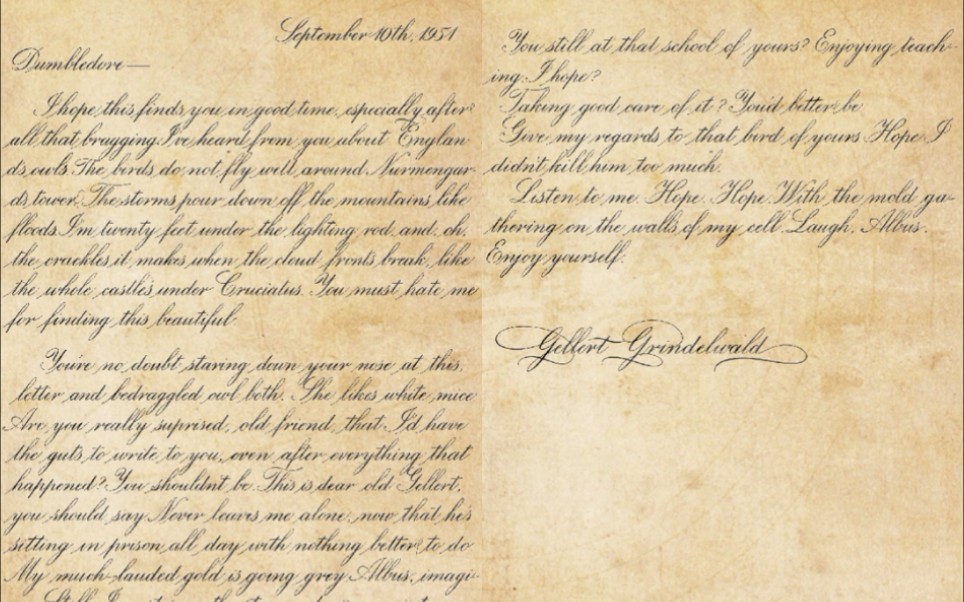 September 10th, 1951
Dumbledore—
I hope this finds you in good time, especially after
all that bragging I've heard from you about Englan
ds owls. The birds do not fly well around Nurmengar
ds tower. The storms pour down off the mountains like
floods. I'm twenty feet under the lighting rod and, oh,
the crackles it makes when the cloud fronts break, like
the whole castle's under Cruciatus. You must hate me
for finding this beautiful.
You're no doubt staring down your nose at this
letter and bedraggled owl both. She likes white mice
Are you really suprised, old friend, that I'd have
the guts to write to you, even after everything that
happened? You shouldnt be. This is dear old Gellert,
you should say. Never leaves me alone, now that he's
sitting in prison all day with nothing better to do
My much-lauded gold is going grey Albus, imagi-
You still at that school of yours? Enjoying teach-
ing I hope?
Taking good care of it? You'd better be
Give my regards to that bird of yours. Hope I
didn't kill him too much.
Listen to me. Hope. Hope. With the mold ga-
thering on the walls of my cell. Laugh, Albus.
Enjoy yourself.
Gellert Grindelwald